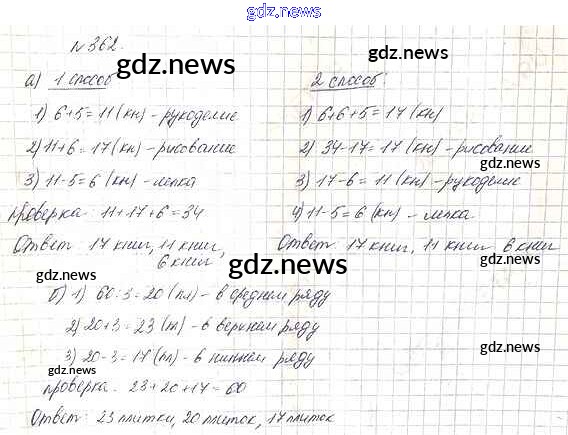 gdz.news
№ 362.
а) 1 способ
1) 6+5=11 (кн) - рукоделие
2) 11+6=17 (кн) - рисование
3) 11-5=6 (кн) - лепка
проверка: 11+17+6=34
Ответ: 17 книг, 11 книг,
6 книг
2 способ:
1) 6+6+5=17 (кн)
2) 34-17=17 (кн) - рисование
3) 17-6=11 (кн) - рукоделие
4) 11-5=6 (кн) - лепка.
Ответ: 17 книг, 11 книг 6 книг
б) 1) 60:3=20 (пл) - в среднем ряду
2) 20+3=23 (пл) - в верхнем ряду
3) 20-3=17 (пл) - в нижнем ряду
проверка: 23+20+17=60
Ответ: 23 плитки, 20 плиток, 17 плиток
gdz.news
gdz.news
gdz.news
gdz.news
gdz.news
gdz.news
gdz.news
gdz.news
gdz.news
gdz.news